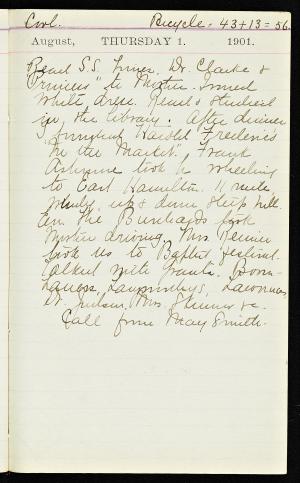 Cool. Bicycle - 43 + 13 = 56.
August, THURSDAY 1. 1901.
Read S.S. Times. Dr. Clarke &
" to Mother. Ironed
white dress. Read & studied
in the library. After dinner
finished Harold Frederic's
"In the Market", Frank
took me wheeling
to East Hamilton. 11 miles
mostly up & down steep hill.
Eve. The Burchards took
Mother driving. Mrs.
took us to Baptist festival.
Talked with
Langworthys,
Dr. Mrs. Skinner &c.
Call from May Smith.